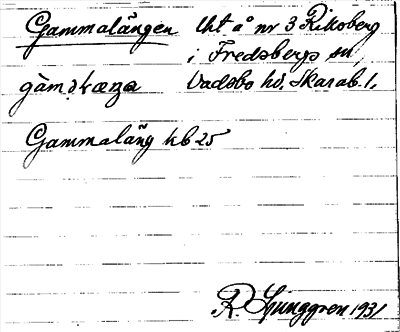 Gammalängen Åkt å nr 3 Riksberg
i Fredsbergs sn,
Vadsbo hd. Skarab. l.
Gammaläng kb 25
R Ljunggren 1931